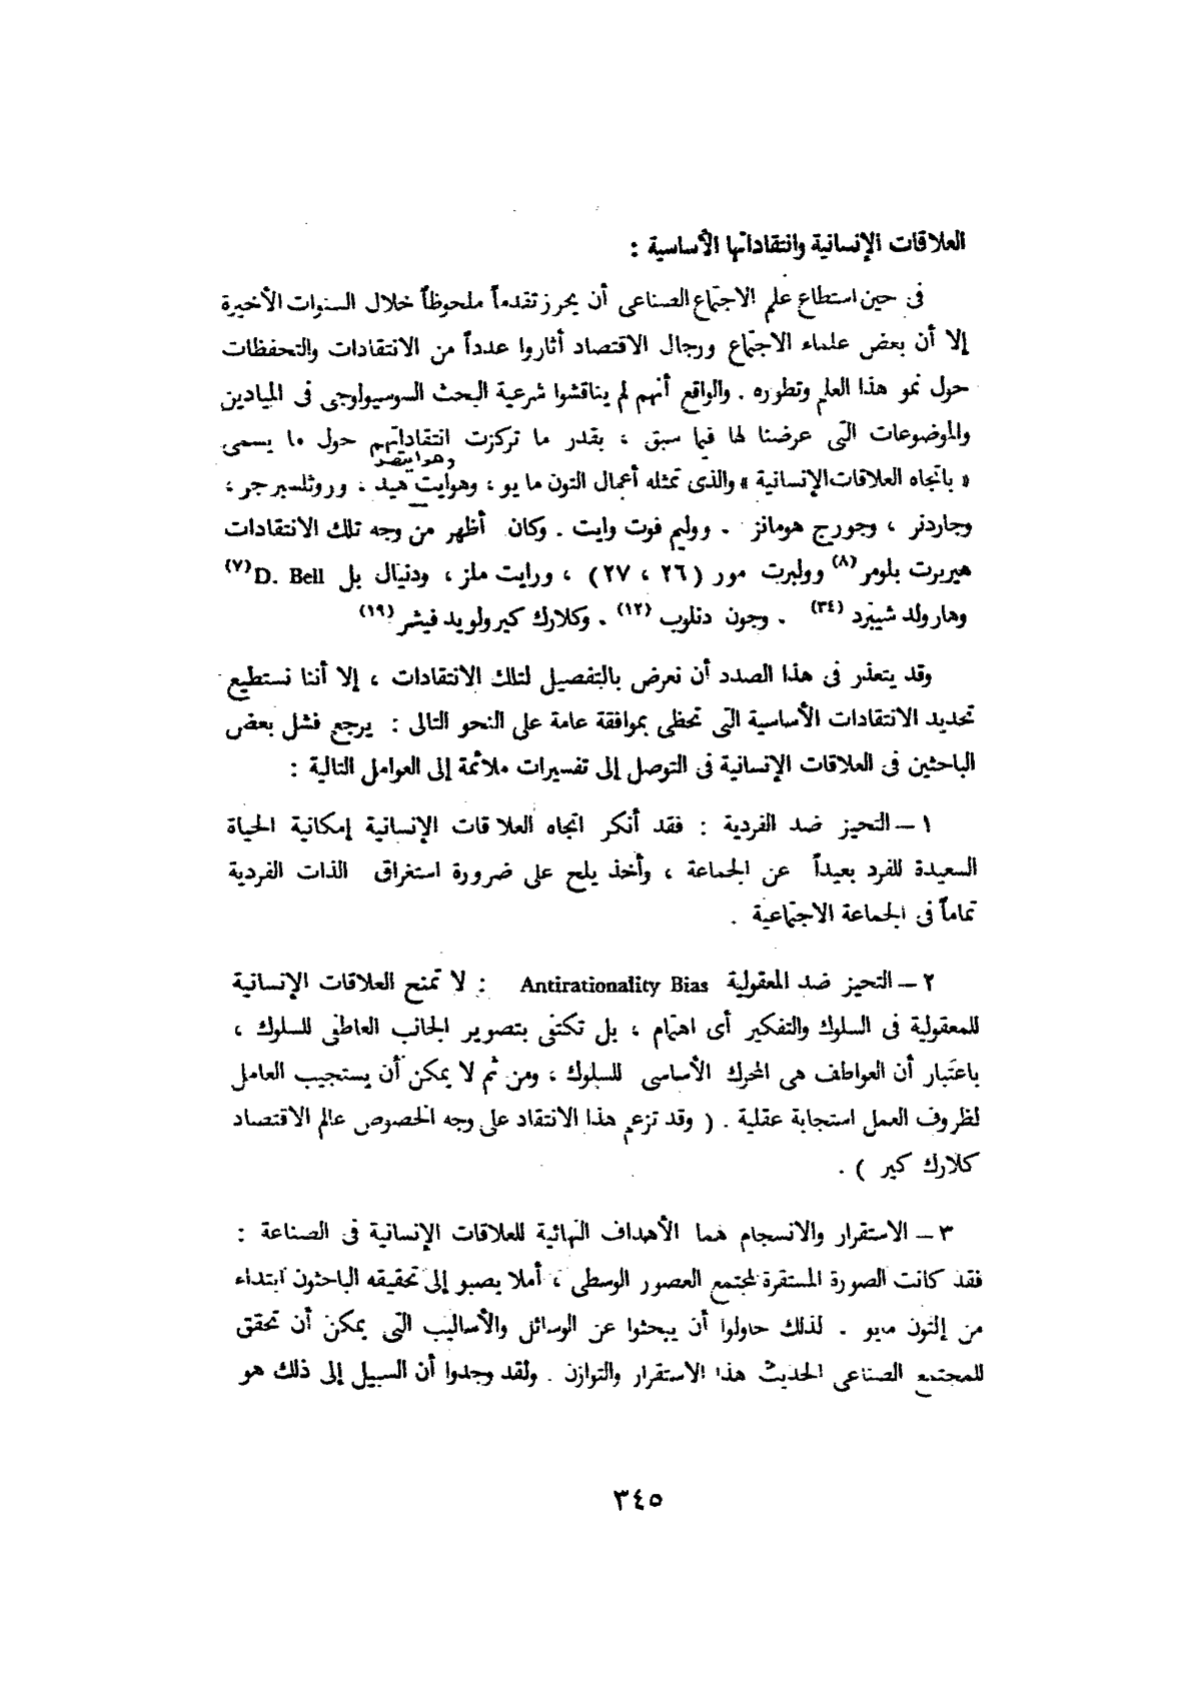 العلاقات الإنسانية وانتقاداتها الأساسية :
فى حين استطاع علم الاجتماع الصناعى أن يحرز تقدماً ملحوظاً خلال السنوات الأخيرة
إلا أن بعض علماء الاجتماع ورجال الاقتصاد أثاروا عدداً من الانتقادات والتحفظات
حول نمو هذا العلم وتطوره . والواقع أنهم لم يناقشوا شرعية البحث السوسيولوجى فى الميادين
والموضوعات التى عرضنا لها فيما سبق ، بقدر ما تركزت انتقاداتهم حول ما يسمى
« باتجاه العلاقات الإنسانية » والذى تمثله أعمال التون مايو ، وهوايت هيد ، وروثلسبرجر ،
وجاردنر ، وجورج هومانز . ووليم فوت وايت . وكان أظهر من وجه تلك الانتقادات
هيربرت بلومر (٨) وولبرت مور ( ٢٦ ، ٢٧ ) ، ورايت ملز ، ودنيال بل D. Bell (٧)
وهارولد شيبرد (٣٤) . وجون دنلوب (١٢) . وكلارك كير ولويد فيشر (١٩)
وقد يتعذر فى هذا الصدد أن نعرض بالتفصيل لتلك الانتقادات ، إلا أننا نستطيع
تحديد الانتقادات الأساسية التى تحظى بموافقة عامة على النحو التالى : يرجع فشل بعض
الباحثين فى العلاقات الإنسانية فى التوصل إلى تفسيرات ملائمة إلى العوامل التالية :
١ – التحيز ضد الفردية : فقد أنكر اتجاه العلاقات الإنسانية إمكانية الحياة
السعيدة للفرد بعيداً عن الجماعة ، وأخذ يلح على ضرورة استغراق الذات الفردية
تماماً فى الجماعة الاجتماعية .
٢ – التحيز ضد المعقولية Antirationality Bias : لا تمنح العلاقات الإنسانية
للمعقولية فى السلوك والتفكير أى اهتمام ، بل تكتفى بتصوير الجانب العاطفى للسلوك ،
باعتبار أن العواطف هى المحرك الأساسى للسلوك ، ومن ثم لا يمكن أن يستجيب العامل
لظروف العمل استجابة عقلية . ( وقد تزعم هذا الانتقاد على وجه الخصوص عالم الاقتصاد
كلارك كير ) .
٣ – الاستقرار والانسجام هما الأهداف النهائية للعلاقات الإنسانية فى الصناعة :
فقد كانت الصورة المستقرة لمجتمع العصور الوسطى ، أملا يصبو إلى تحقيقه الباحثون ابتداء
من إلتون مايو . لذلك حاولوا أن يبحثوا عن الوسائل والأساليب التى يمكن أن تحقق
للمجتمع الصناعى الحديث هذا الاستقرار والتوازن . ولقد وجدوا أن السبيل إلى ذلك هو
٣٤٥